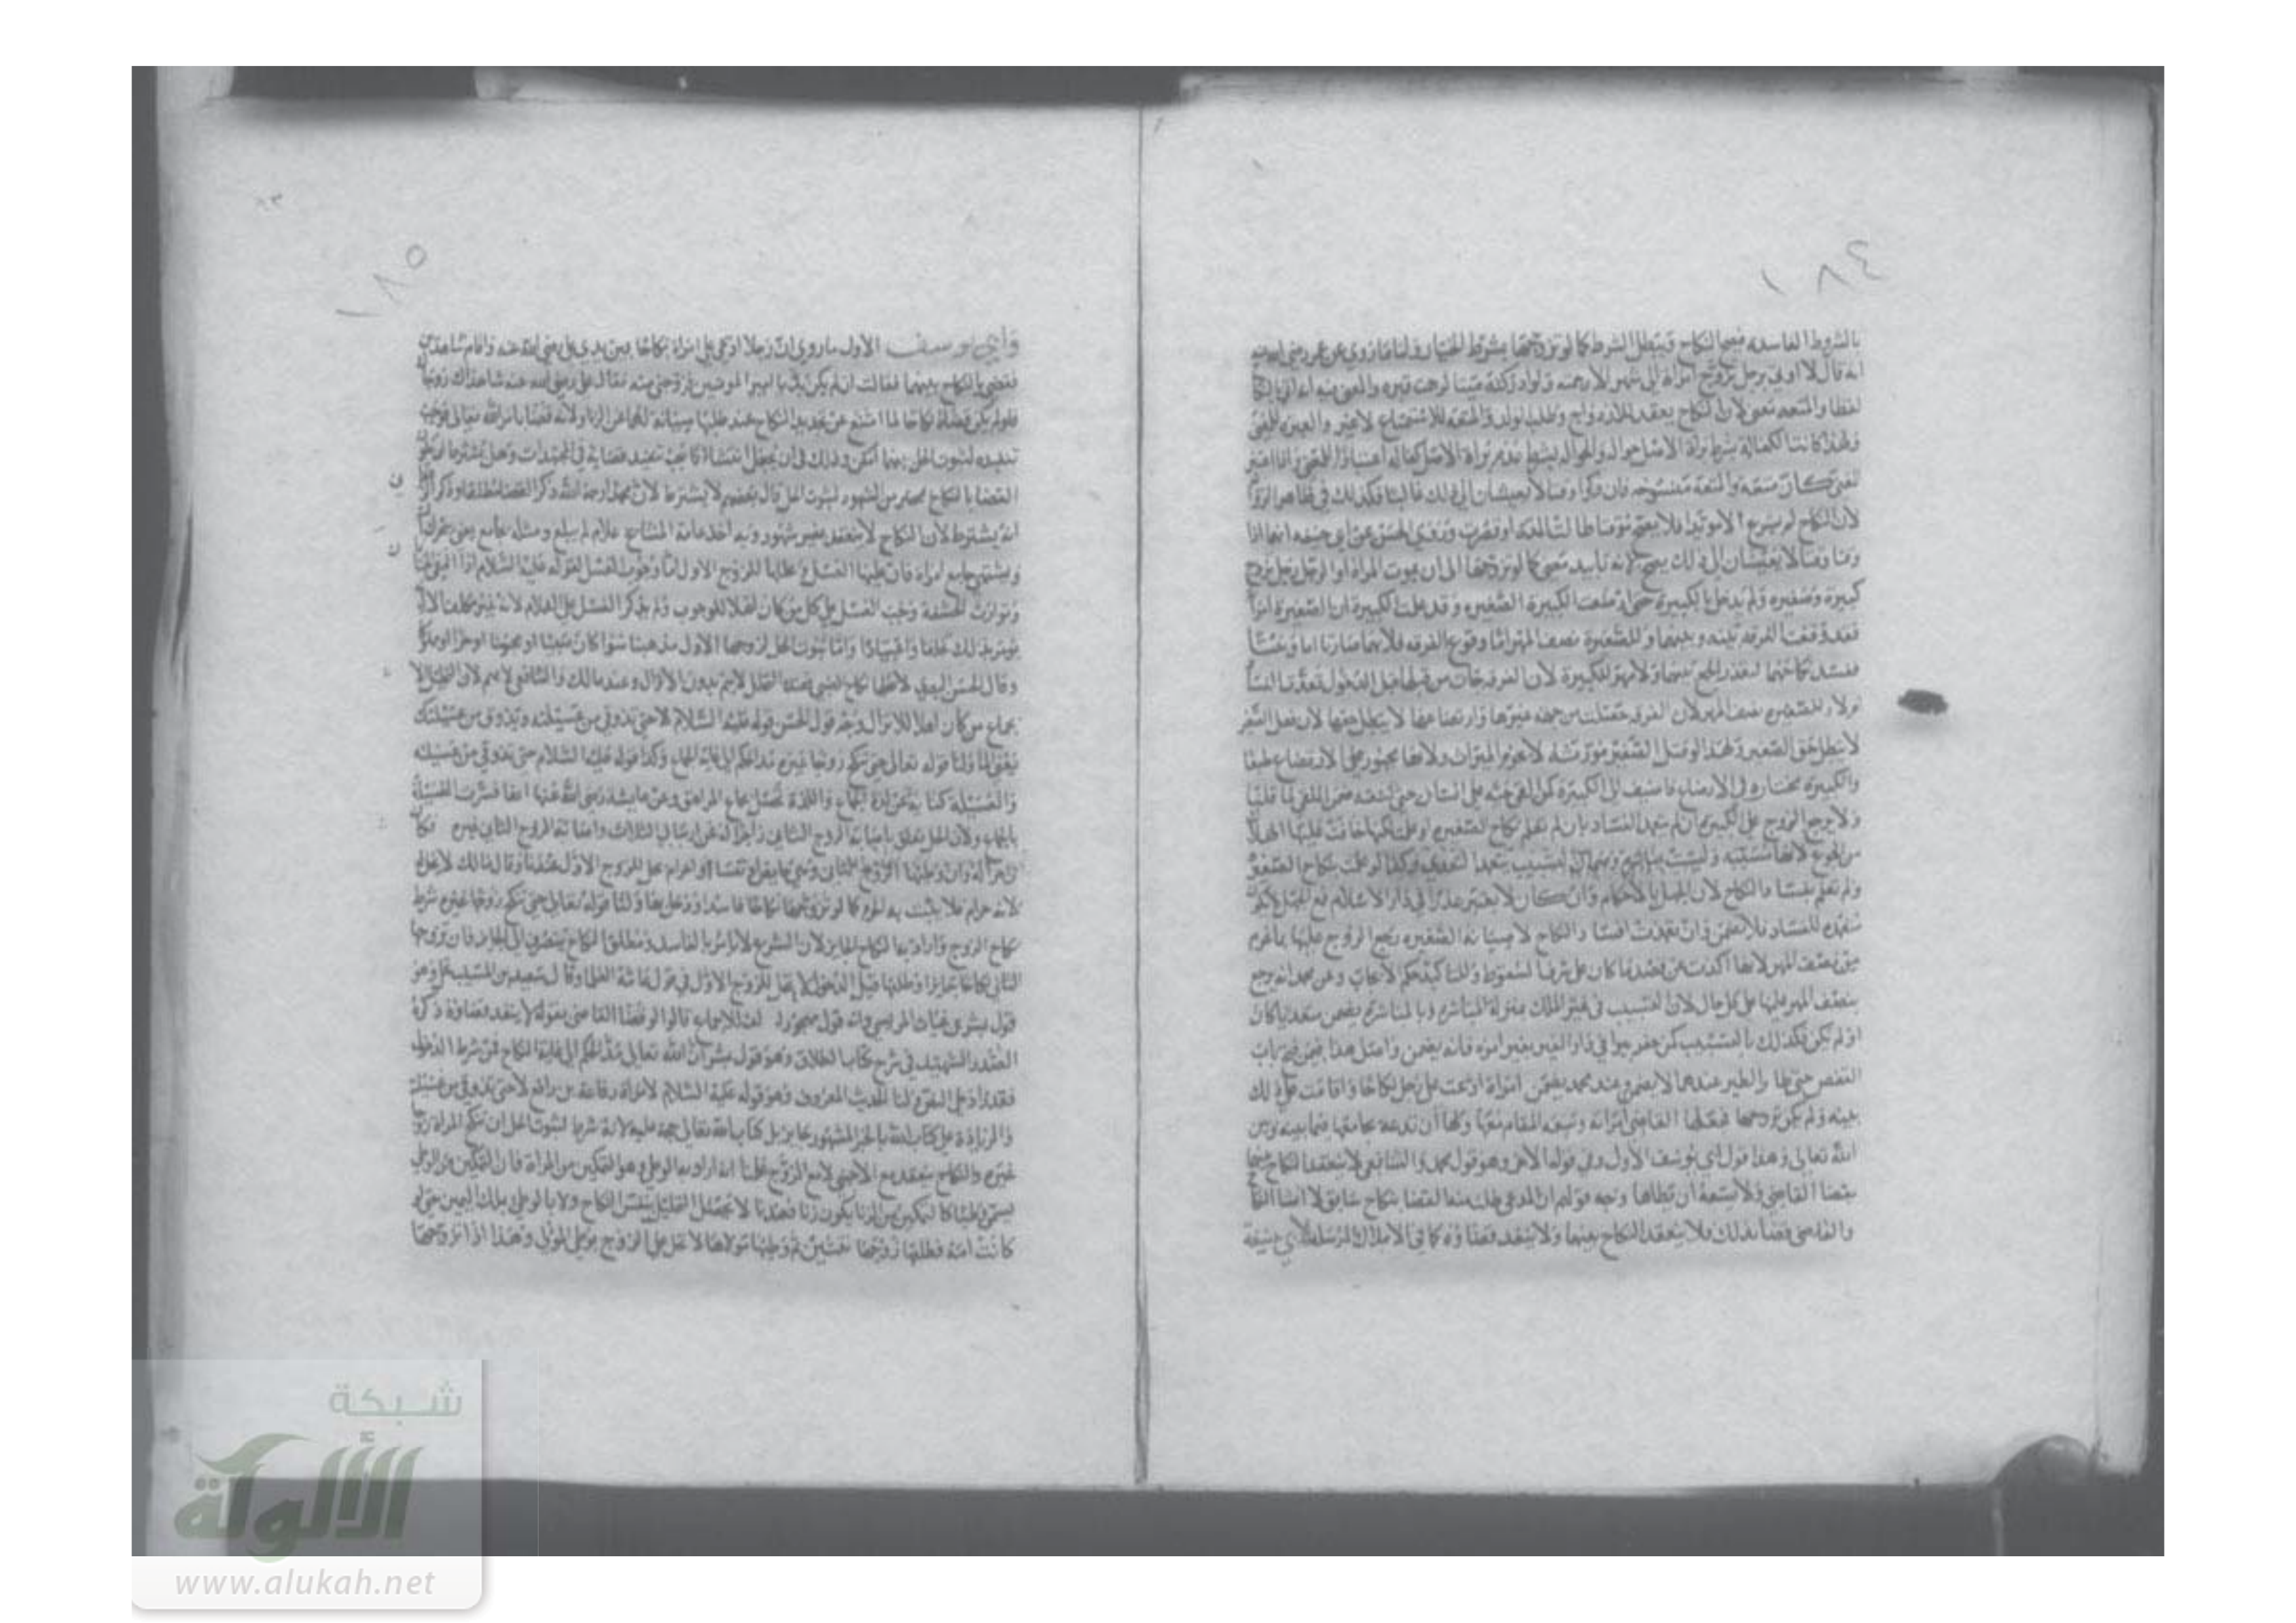 ١٨٤
بالشروط الفاسدة فيصح النكاح ويبطل الشرط كما لو تزوجها بشرط الخيار ولنا ما روي عن عمر رضي الله عنه
انه قال لا اوتى برجل تزوج امراة الى شهر الا رجمته ولو ادركته ميتا لرجمت قبره والمعنى فيه
لفظا والمتعة معنى لان النكاح يعقد للازدواج وطلب الولد والمتعة للاستمتاع لا غير والعبرة للمعنى
ولهذا كانت الكفالة بشرط براة الاصيل حوالة والحوالة بشرط عدم براة الاصيل كفالة اعتبارا للمعنى واذا اعتبر
المعنى كان متعة والمتعة منسوخة فان ذكرا وقتا لا يعيشان الى ذلك غالبا فكذلك في ظاهر
لان النكاح لم يشرع الا موبدا فلا يصح موقتا طالت المدة او قصرت وروي الحسن عن ابي حنيفة انهما اذا
وقتا وقتا لا يعيشان الى ذلك يصح لانه تابيد معنى كما لو تزوجها الى ان يموت المراة او الرجل رجل تزوج
كبيرة وصغيرة ولم يدخل بالكبيرة حتى ارضعت الكبيرة الصغيرة وقد علمت الكبيرة ان الصغيرة
فقد وقعت الفرقة بينه وبينهما وللصغيرة نصف المهر اما وقوع الفرقة فلانهما صارتا اما وبنتا
ففسد نكاحهما لتعذر الجمع بينهما ولا مهر للكبيرة لان الفرقة جات من قبلها قبل الدخول
للصغيرة نصف المهر لان الفرقة حصلت من جهة غيرها وارتضاعها لا يبطل حقها لان فعل الصغير
لا يبطل حق الصغيرة ولهذا لو قتل الصغير مورثه لا يحرم الميراث ولانها مجبورة على الارتضاع طبعا
والكبيرة مختارة في الارضاع فاضيف الى الكبيرة كمن القى حية على انسان حتى لدغته ضمن الملقي لما قلنا
ولا يرجع الزوج على الكبيرة ان لم تتعمد الفساد بان لم تعلم نكاح الصغيرة او علمت لكنها خافت عليها الهلاك
من الجوع لانها متسببة وليست بمباشرة وكذا لو علمت بنكاح الصغيرة
ولم تعلم بفساد النكاح لان الجهل بالاحكام وان كان لا يعتبر عذرا في دار الاسلام
متعمدة للفساد فلا تضمن وان تعمدت افساد النكاح لا صيانة الصغيرة رجع الزوج عليها بما غرم
من نصف المهر لانها اكدت عن فصد ما كان على شرف السقوط وللتاكيد حكم الايجاب وعن محمد انه يرجع
بنصف المهر عليها على كل حال لان التسبب في غير الملك بمنزلة المباشرة وبالمباشرة يضمن متعديا كان
او لم يكن فكذلك بالتسبب كمن حفر بيرا في دار الغير بغير امره فانه يضمن واصل هذا فيمن فتح باب
القفص حتى طار الطير عندهما لا يضمن وعند محمد يضمن امراة ادعت على رجل نكاحا واقامت على ذلك
بينة ولم يكن تزوجها فجعلها القاضي امراته وسعه المقام معها ولها ان تدعه يجامعها فيما بينه وبين
الله تعالى وهذا قول ابي يوسف الاول وفي قوله الاخر وهو قول محمد والشافعي لا ينعقد النكاح بينهما
بقضا القاضي ولا يسعه ان يطاها وجه قولهم ان المدعي طلب منه القضا بنكاح سابق لا انشا
والقاضي قضا بذلك فلا ينعقد النكاح بينهما ولا ينفذ قضاؤه كما في الاملاك المرسلة لابي حنيفة
١٨٥
وابي يوسف الاول ما روي ان رجلا ادعى على امراة نكاحا بين يدي علي رضي الله عنه واقام شاهدين
فقضى بالنكاح بينهما فقالت ان لم يكن بد يا امير المومنين فزوجني منه فقال علي رضي الله عنه شاهداك زوجاك
فلو لم يكن قضاؤه نكاحا لما امتنع عن تجديد النكاح عند طلبها صيانة لهما عن الزنا ولانه قضا بامر الله تعالى فوجب
تنفيذه لثبوت الحل بينهما وذلك في ان يجعل انشاء كما يجب تنفيذ قضاية في المجتهدات وهل يشترط
القضا بالنكاح محضر من الشهود لثبوت الحل قال بعضهم لا يشترط لان محمدا رحمه الله ذكر القضا مطلقا وذكر
انه يشترط لان النكاح لا ينعقد بغير شهود وبه اخذ عامة المشايخ غلام لم يبلغ ومثله يجامع
ويشتهي جامع امراة فان عليها الغسل ويحلها للزوج الاول اما وجوب الغسل لقوله عليه السلام اذا التقى
وتوارت الحشفة وجب الغسل على كل من كان اهلا للوجوب ولم يذكر الغسل على الغلام لانه غير مكلف الا انه
يومر بذلك تخلقا واعتيادا واما ثبوت الحل لزوجها الاول مذهبنا سوا كان
وقال الحسن البصري لا يحلها نكاح الصبي لا يتم بدون الانزال وعند مالك والشافعي لا يتم لان التحليل لا
بجماع من كان اهلا للانزال وجه قول الحسن قوله عليه السلام لا حتى تذوقي من عسيلته ويذوق من عسيلتك
ولنا قوله تعالى حتى تنكح زوجا غيره مد الحكم الى غاية الجماع وكذا قوله عليه السلام حتى تذوقي من عسيلته
والعسيلة كناية عن لذة الجماع واللذة تحصل بجماع المراهق وعن عايشة رضي الله عنها انها فسرت العسيلة
بالجماع ولان الحل تعلق باصابة الزوج الثاني
وان وطئها الزوج الثاني وهي حايض او نفسا او احرام يحل للزوج الاول عندنا وقال مالك لا يحل
لانه حرام فلا يثبت به الحل كما لو تزوجها نكاحا فاسدا ودخل بها ولنا قوله تعالى حتى تنكح زوجا غيره شرط
نكاح الزوج واراد به النكاح الجايز لان الشرع لا يامر بالفاسد ومطلق النكاح ينصرف الى الجايز فان تزوجها
الثاني نكاحا جايزا وطلقها قبل الدخول لا تحل للزوج الاول في قول عامة العلما وقال سعيد بن المسيب تحل وهو
قول بشر بن غياث المريسي وانه قول مهجور قالوا لو قضا القاضي بقوله لا ينفذ قضاؤه ذكره
الصدر الشهيد في شرح كتاب الطلاق وهو قول بشر ان الله تعالى مد الحكم الى غاية النكاح فمن شرط الدخول
فقد زاد على النص ولنا الحديث المعروف وهو قوله عليه السلام لامراة رفاعة بن رافع لا حتى تذوقي من عسيلته
والزيادة على كتاب الله بالخبر المشهور جايز بل كتاب الله تعالى حجة عليه لانه شرط لثبوت الحل ان تنكح المراة زوجا
غيره والنكاح ينعقد مع الاجنبي لا مع الزوج علمنا انه اراد به الوطي وهو التمكين من المراة فان التمكين من الوطي
يسمى وطئا كالتمكين من الزنا يكون زنا فعندنا لا يحصل التحليل بنفس النكاح ولا بالوطي بملك اليمين حتى لو
كانت امة فطلقها زوجها ثنتين ثم وطيها مولاها لا تحل على الزوج بوطي المولى وهذا اذا تزوجها
شبكة
الألوكة
www.alukah.net